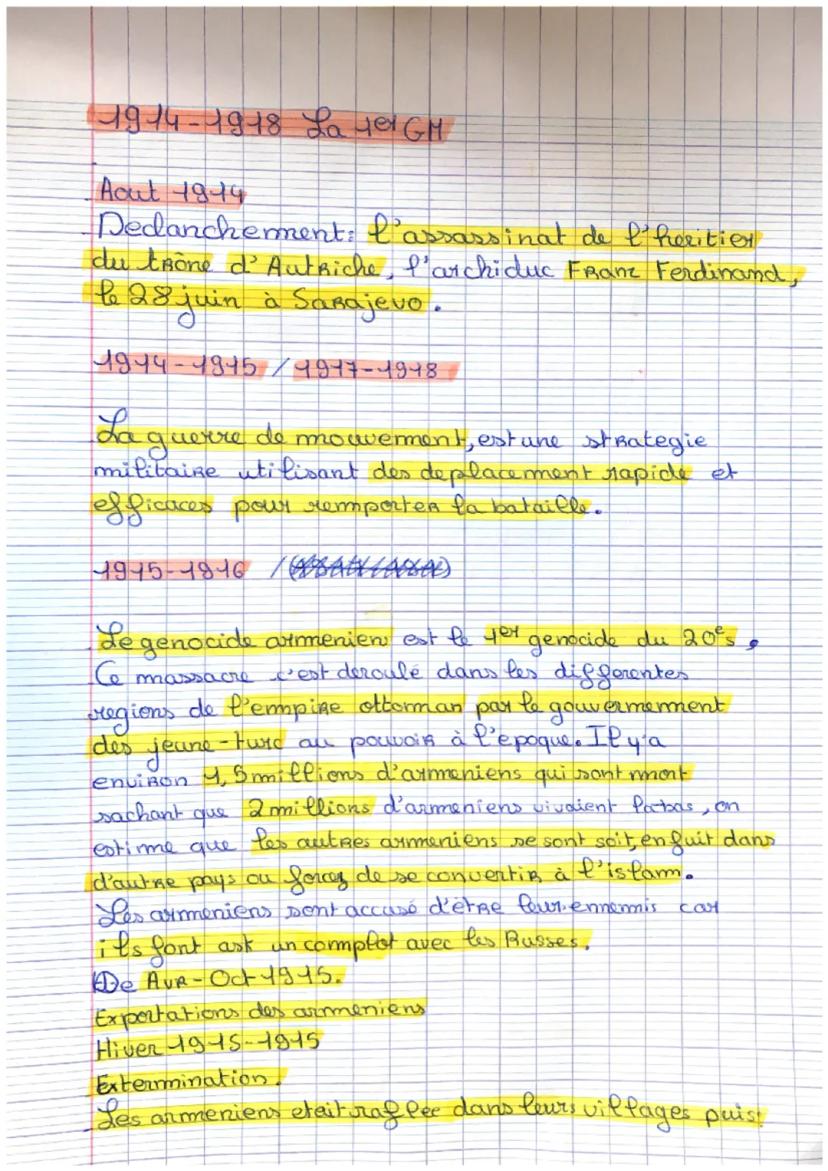 1914-1918 La 1er GM
Aout 1914
Declanchement: l'assassinat de l'heritier
du trône d'Autriche, l'archiduc Franz Ferdinand,
le 28 juin à Sarajevo.
1914-1915 / 1917-1918
La guerre de mouvement, est une strategie
militaire utilisant des deplacement rapide et
efficaces pour remporter la bataille.
1915-1916 /
Le genocide armenien est le 1er genocide du 20e s,
Ce massacre c'est deroulé dans les differentes
regions de l'empire ottoman par le gouvernement
des jeune-turc au pouvoir à l'epoque. Il y'a
environ 1,5 millions d'armeniens qui sont mort
sachant que 2 millions d'armeniens vivaient labas, on
estime que les autres armeniens se sont soit, enfuit dans
d'autre pays ou forcez de se convertir à l'islam.
Les armeniens sont accusé d'être leur ennemis car
ils font un complot avec les Russes.
De Avr-Oct 1915.
Exportations des armeniens
Hiver 1915-1915
Extermination.
Les armeniens eteit raflee dans leurs villages puis